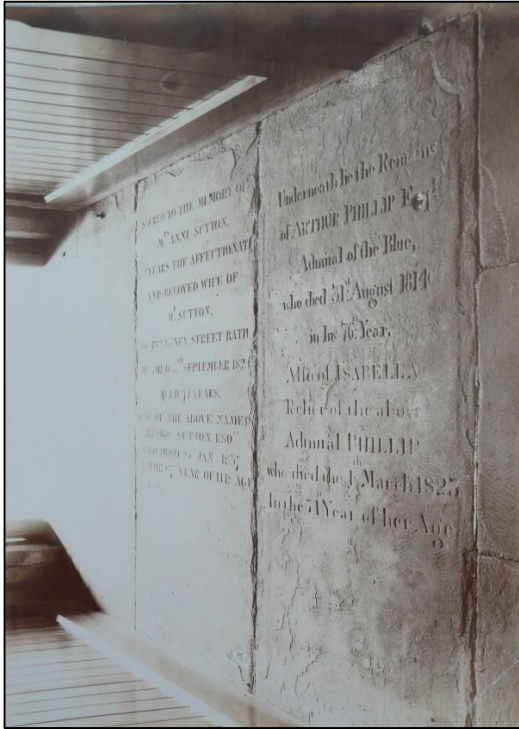 SACRED TO THE MEMORY OF
Mrs ANNE SUTTON,
YEARS THE AFFECTIONATE
AND BELOVED WIFE OF
Mr SUTTON.
STREET BATH
SEPTEMBER
AGED YEARS.
OF THE ABOVE NAMED
SUTTON ESQR
DIED JAN 1837
THE YEAR OF HER AGE
Underneath lie the Remains
of ARTHUR PHILLIP Esqr.
Admiral of the Blue,
who died 31st August 1814
in his 76 Year.
Also of ISABELLA
Relict of the above
Admiral PHILLIP
who died the 4th March 1823
In the 71 Year of her Age